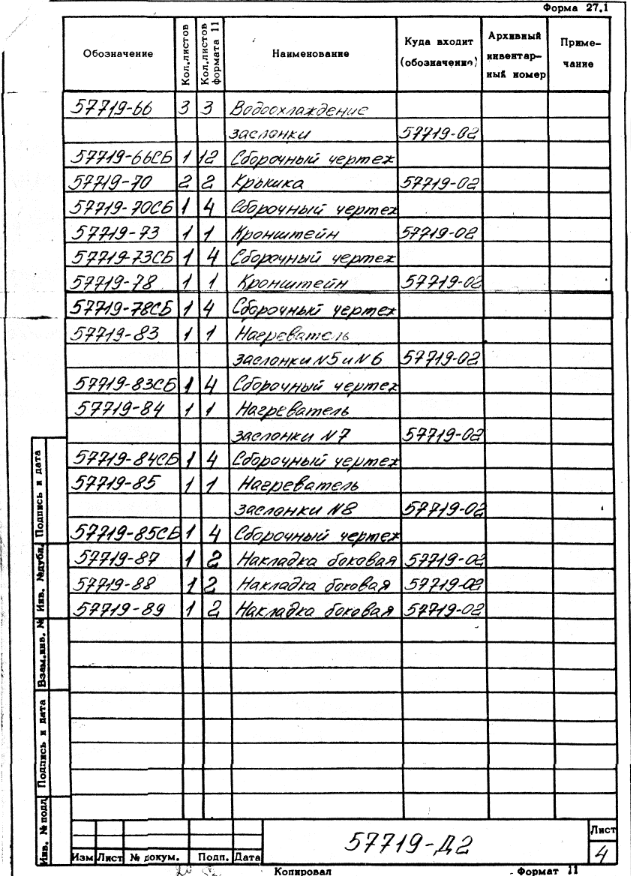 Форма 27.1
Обозначение Кол.листов Кол.листов формата 11 Наименование Куда входит (обозначение) Архивный инвентарный номер Примечание
57719-66 3 3 Водоохлаждение
заслонки 57719-02
57719-66СБ 1 12 Сборочный чертеж
57719-70 2 2 Крышка 57719-02
57719-70СБ 1 4 Сборочный чертеж
57719-73 1 1 Кронштейн 57719-02
57719-73СБ 1 4 Сборочный чертеж
57719-78 1 1 Кронштейн 57719-02
57719-78СБ 1 4 Сборочный чертеж
57719-83 1 1 Нагреватель
заслонки N5 и N6 57719-02
57719-83СБ 1 4 Сборочный чертеж
57719-84 1 1 Нагреватель
заслонки N7 57719-02
57719-84СБ 1 4 Сборочный чертеж
57719-85 1 1 Нагреватель
заслонки N8 57719-02
57719-85СБ 1 4 Сборочный чертеж
57719-87 1 2 Накладка боковая 57719-02
57719-88 1 2 Накладка боковая 57719-02
57719-89 1 2 Накладка боковая 57719-02
Подпись и дата
Инв. №дубл.
Взам.инв. №
Подпись и дата
Инв. № подл
Изм Лист № докум. Подп. Дата
57719-Д2
Лист
4
Копировал Формат 11